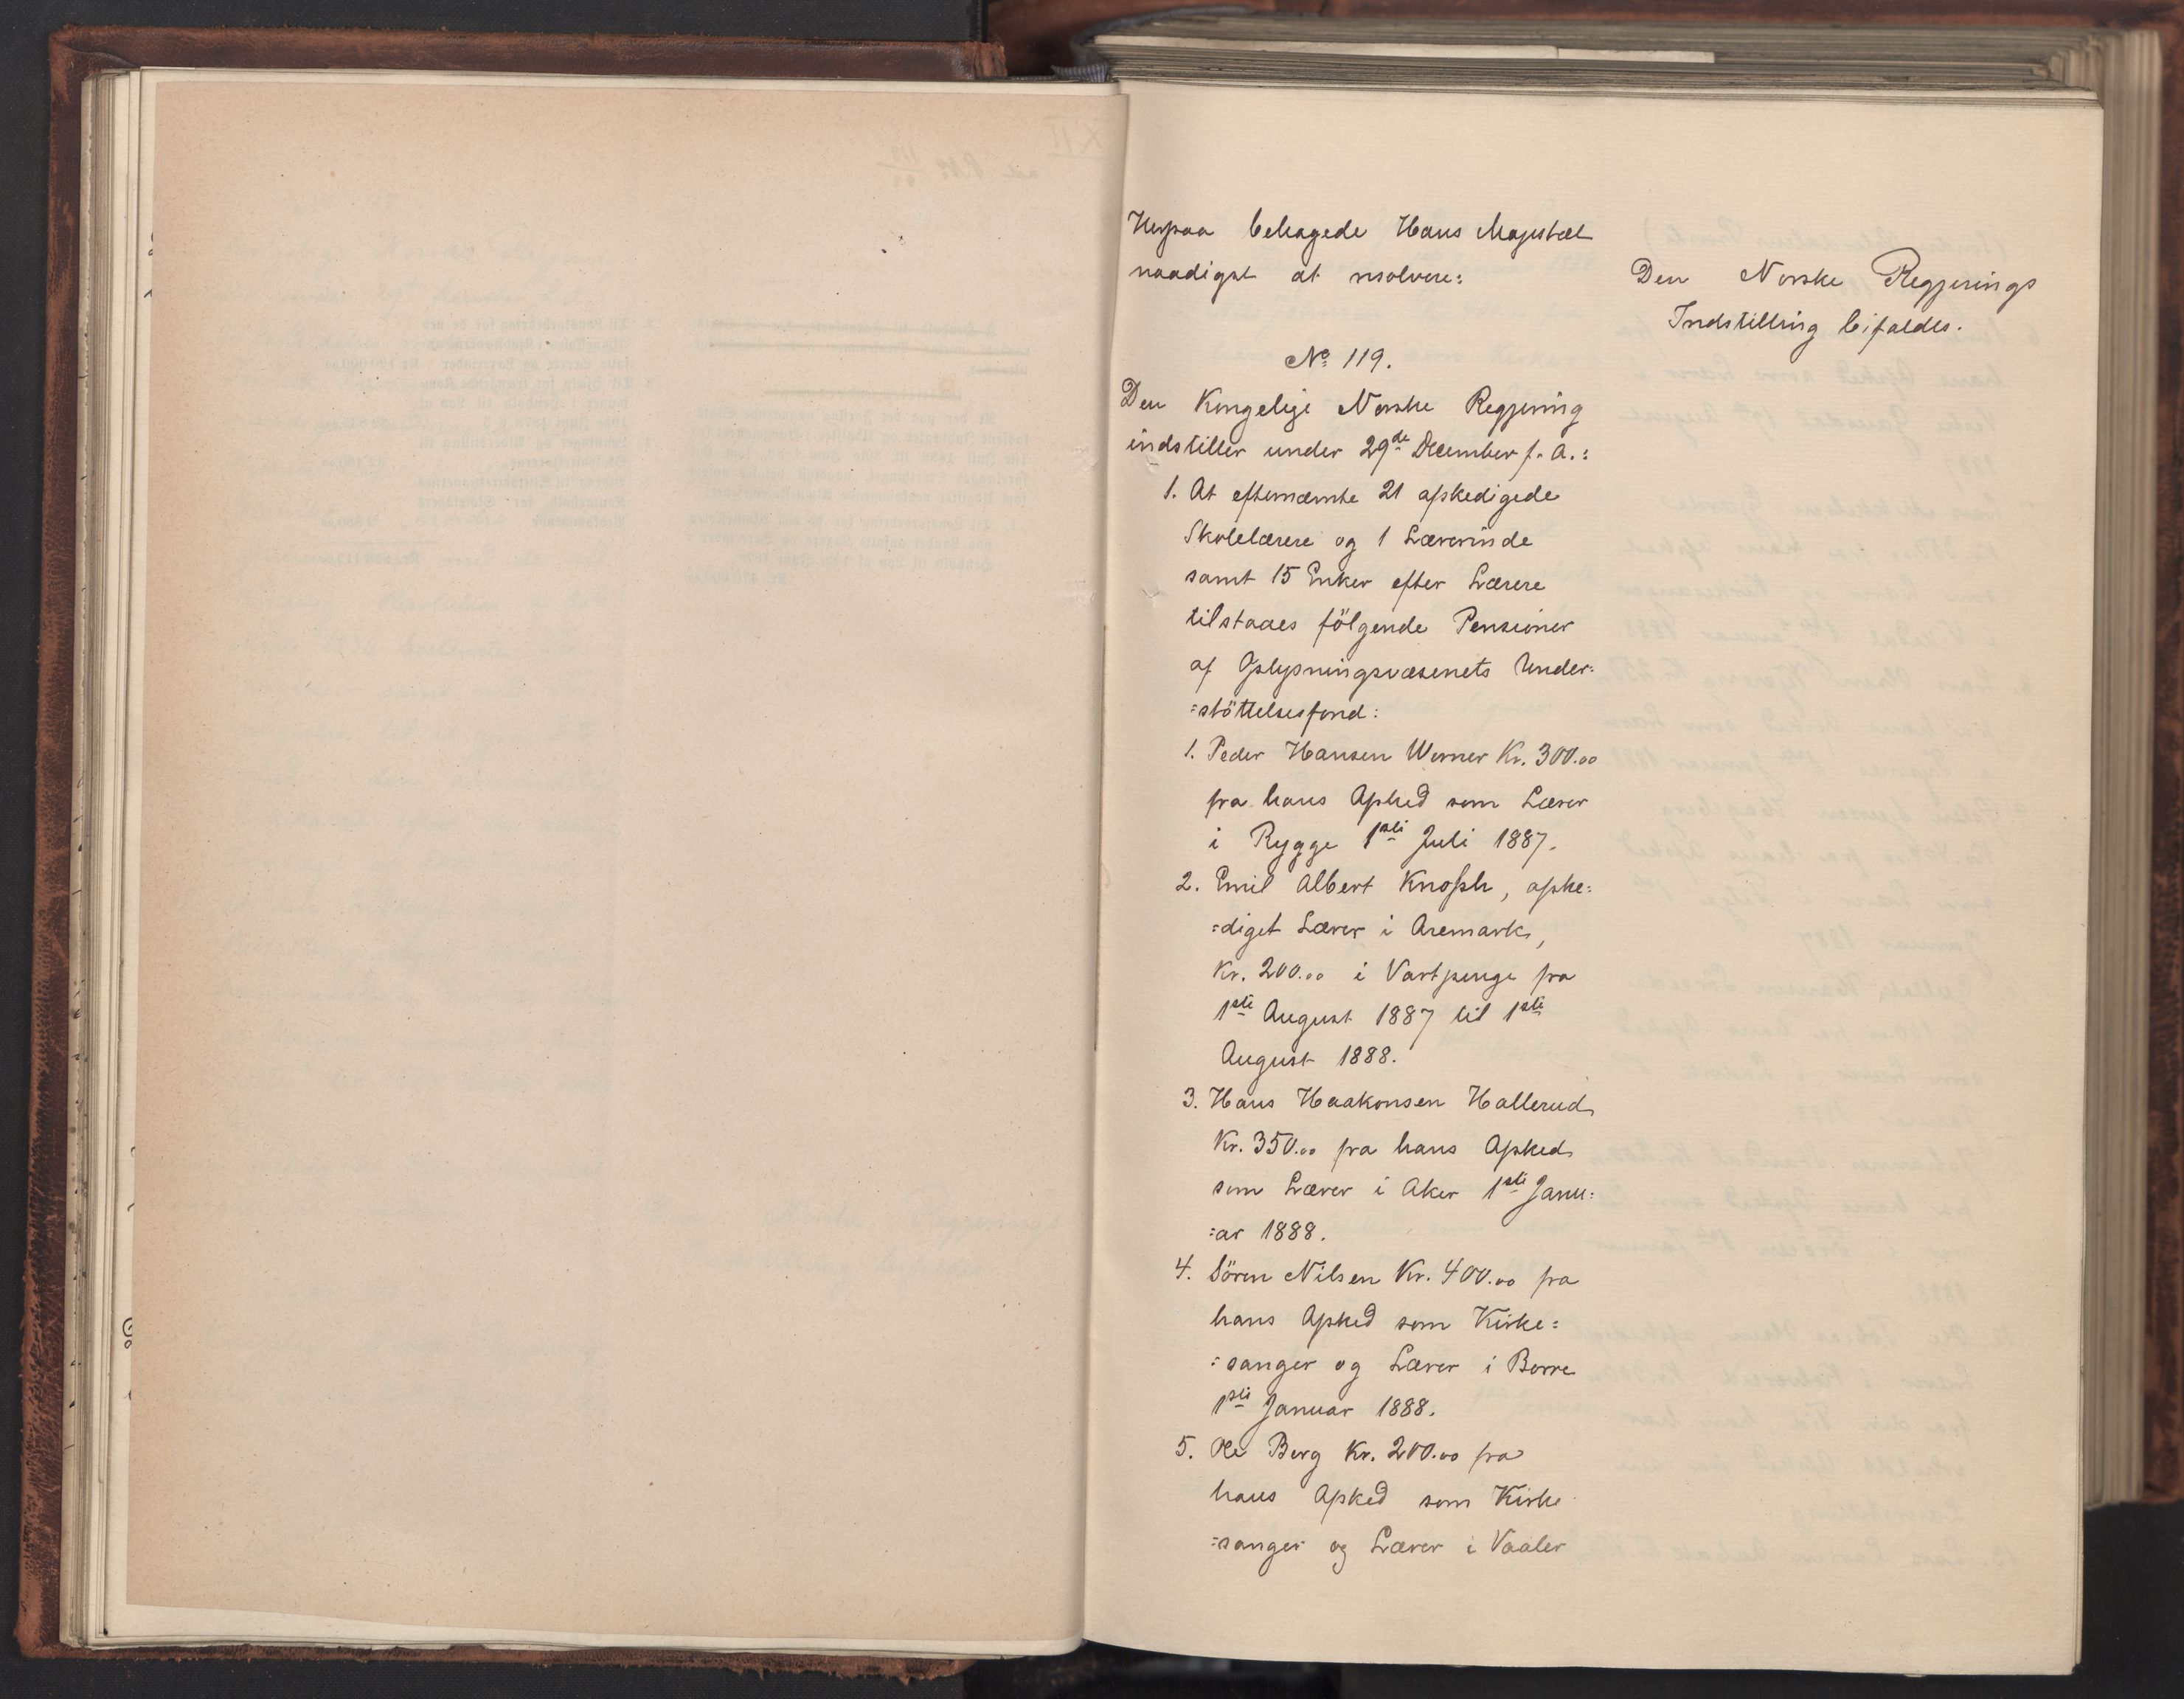 Herpaa behagede Hans Majestæt
naadigst at resolvere:
Den Norske Regjerings
Indstilling bifaldes.
No. 119.
Den Kongelige Norske Regjering
indstiller under 29de December f. A.:
1. At efternævnte 21 afskedigede
Skolelærere og 1 Lærerinde
samt 15 Enker efter Lærere
tilstaaes følgende Pensioner
af Oplysningsvæsenets Under=
=støttelsesfond:
1. Peder Hansen Werner Kr. 300.00
fra hans Afsked som Lærer
i Rygge 1ste Juli 1887.
2. Emil Albert Knoph, afske=
=diget Lærer i Aremark,
Kr. 200.00 i Vartpenge fra
1ste August 1887 til 1ste
August 1888.
3. Hans Haakonsen Hallerud
Kr. 350.00 fra hans Afsked
som Lærer i Aker 1ste Janu=
=ar 1888.
4. Sören Nilsen Kr. 400.00 fra
hans Afsked som Kirke=
=sanger og Lærer i Borre
1ste Januar 1888.
5. Ole Berg Kr. 200.00 fra
hans Afsked som Kirke
=sanger og Lærer i Vaaler